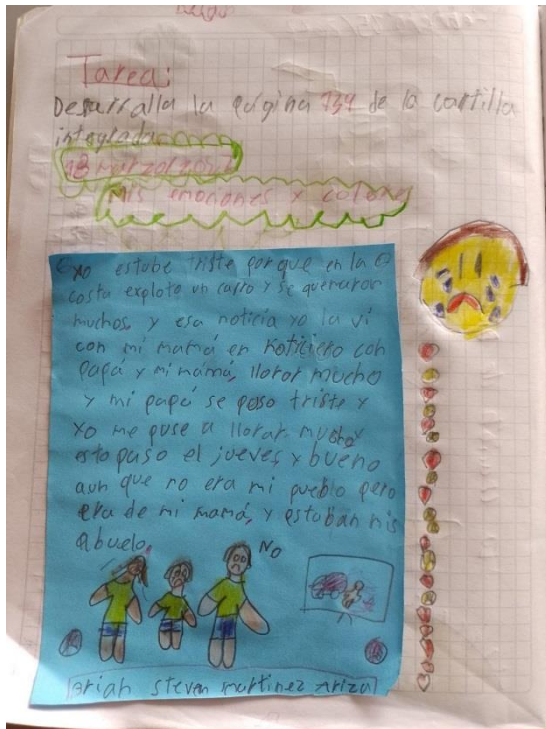 Tarea:
Desarralla la página 134 de la cartilla
integrada
18 marzo
Mis emociones x color
Yo estube triste porque en la
costa exploto un carro y se quemaron
muchos, y esa noticia yo la vi
con mi mamá en noticiero con
papá y mi mamá, llorar mucho
y mi papá se poso triste x
xo me puse a llorar mucho
esto paso el jueves, x bueno
aun que no era mi pueblo pero
era de mi mamá, y estaban mis
abuelo,
NO
Brian Steven martinez Ariza